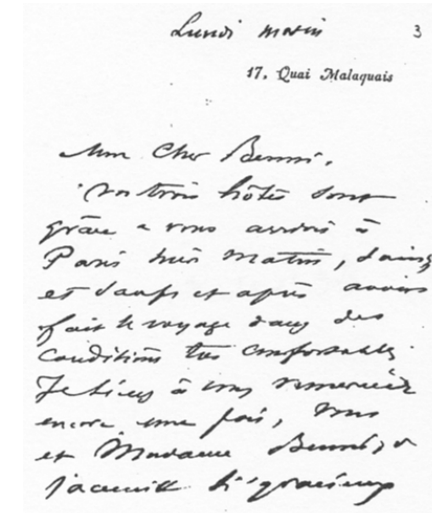 Lundi matin 3
17, Quai Malaquais
Mon Cher Benni,
Vos trois hôtes sont
grâce a vous arrivés à
Paris hier matin, sains
et saufs et après avoir
fait le voyage dans des
conditions très confortables
Je tiens à vous remercier
encore une fois, vous
et Madame de
l'accueil si gracieux